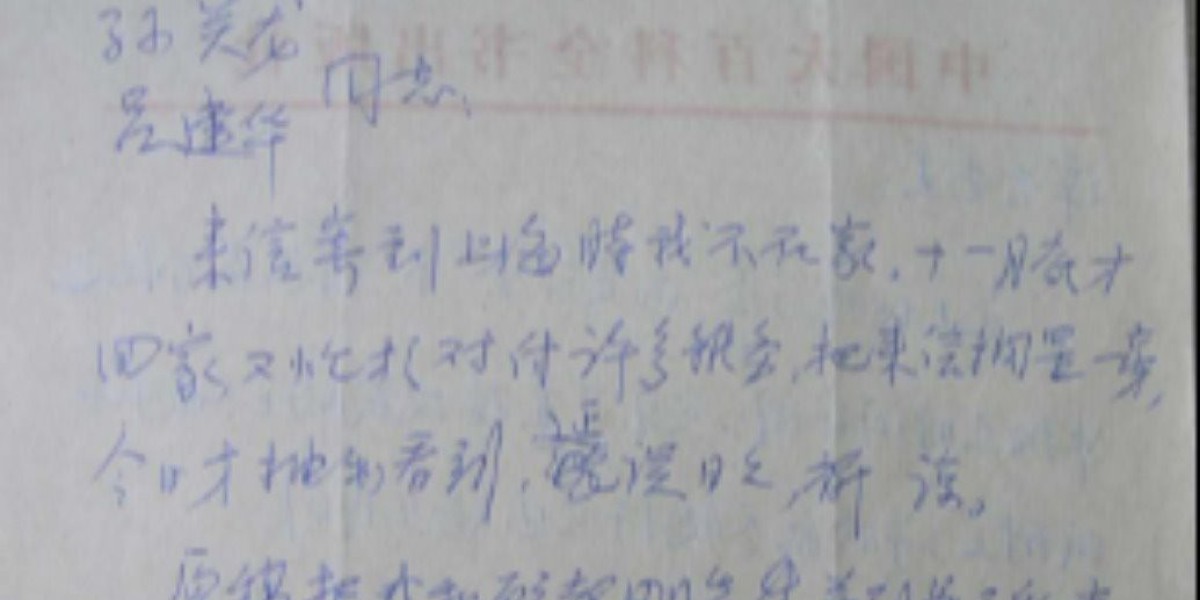 中国大百科全书出版
孙关龙
吕建华 同志:
来信寄到上海时我不在家,十一月底才
回家,又忙于对付许多积务,把来信搁置一旁,
今日才抽出看到,延误日久,祈谅。